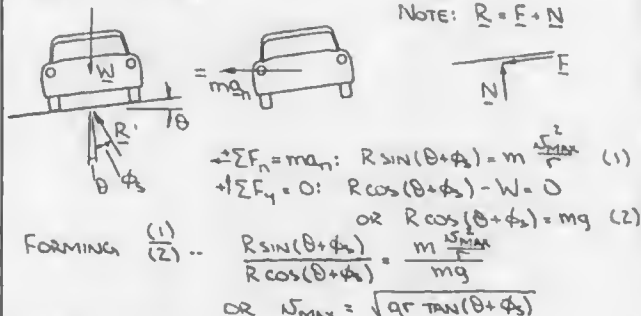 NOTE: R = F + N
W
=
ma_n
F
N
θ
R
θ φ_s
±ΣF_n = ma_n: R SIN(θ+φ_s) = m v²_MAX/r (1)
+↑ΣF_y = 0: R cos(θ+φ_s) - W = 0
OR R cos(θ+φ_s) = mg (2)
FORMING (1)/(2) .. R SIN(θ+φ_s)/R cos(θ+φ_s) = m v²_MAX/r / mg
OR v_MAX = √gr TAN(θ+φ_s)